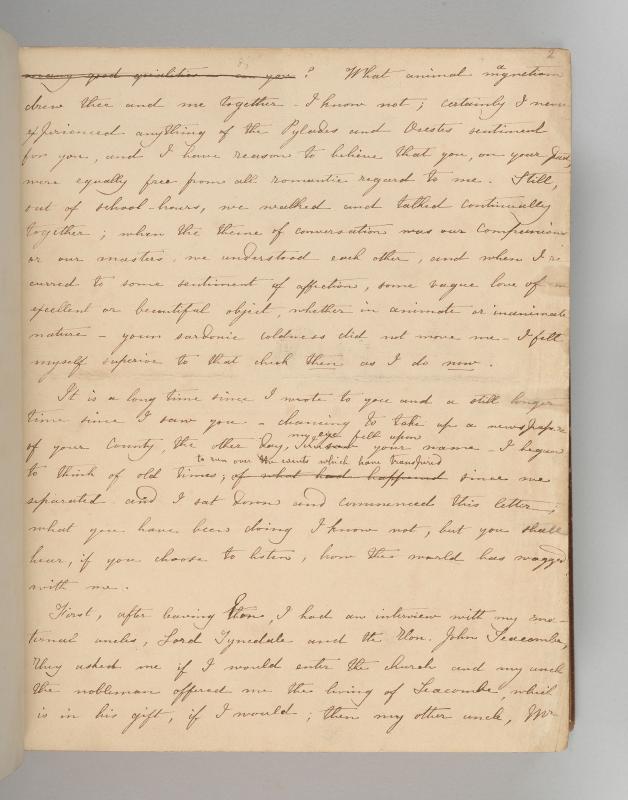 2
many good qualities – can you? What animal magnetism
drew thee and me together I know not; certainly I never
experienced anything of the Pylades and Orestes sentiment
for you, and I have reason to believe that you, on your part,
were equally free from all romantic regard to me. Still,
out of school-hours, we walked and talked continually
together; when the theme of conversation was our companions
or our masters, we understood each other, and when I re
curred to some sentiment of affection, some vague love of an
excellent or beautiful object, whether in animate or inanimate
nature – your sardonic coldness did not move me – I felt
myself superior to that check then as I do now.
It is a long time since I wrote to you and a still longer
time since I saw you – chancing to take up a newspaper
my eye fell upon
of your County, the other day, your name – I began
to run over the events which have transpired
to think of old times; of what had happened since we
separated and I sat down and commenced this letter;
what you have been doing I know not, but you shall
hear, if you choose to listen, how the world has wagged
with me.
First, after leaving Eton, I had an interview with my ma-
ternal uncles, Lord Tynedale and the Hon. John Seacombe,
They asked me if I would enter the church and my uncle
the nobleman offered me the living of Seacombe, which
is in his gift, if I would; then my other uncle, Mr